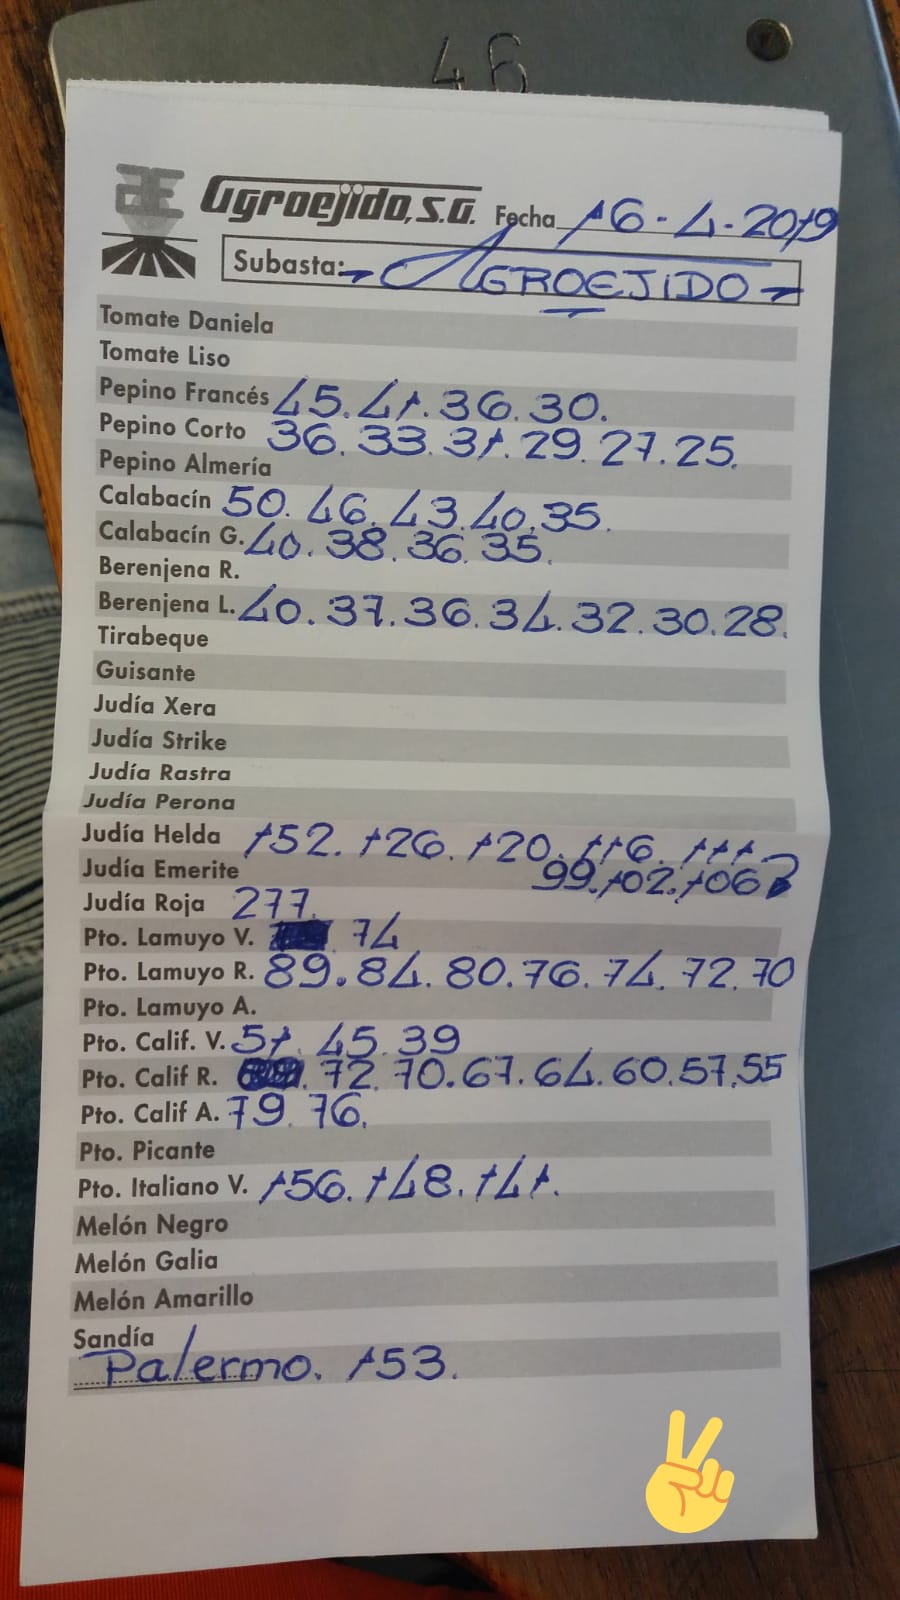 46
AE Agroejido, S.A. Fecha 16-4-2019
Subasta: AGROEJIDO
Tomate Daniela
Tomate Liso
Pepino Francés 45. 41. 36. 30.
Pepino Corto 36. 33. 31. 29. 27. 25.
Pepino Almería
Calabacín 50. 46. 43. 40. 35.
Calabacín G. 40. 38. 36. 35.
Berenjena R.
Berenjena L. 40. 37. 36. 34. 32. 30. 28.
Tirabeque
Guisante
Judía Xera
Judía Strike
Judía Rastra
Judía Perona
Judía Helda 152. 126. 120. 116. 111.
Judía Emerite 99. 102. 106
Judía Roja 277.
Pto. Lamuyo V. 74
Pto. Lamuyo R. 89. 84. 80. 76. 74. 72. 70
Pto. Lamuyo A.
Pto. Calif. V. 51. 45. 39
Pto. Calif R. 72. 70. 67. 64. 60. 57. 55
Pto. Calif A. 79. 76.
Pto. Picante
Pto. Italiano V. 156. 148. 141.
Melón Negro
Melón Galia
Melón Amarillo
Sandía
Palermo. 153.